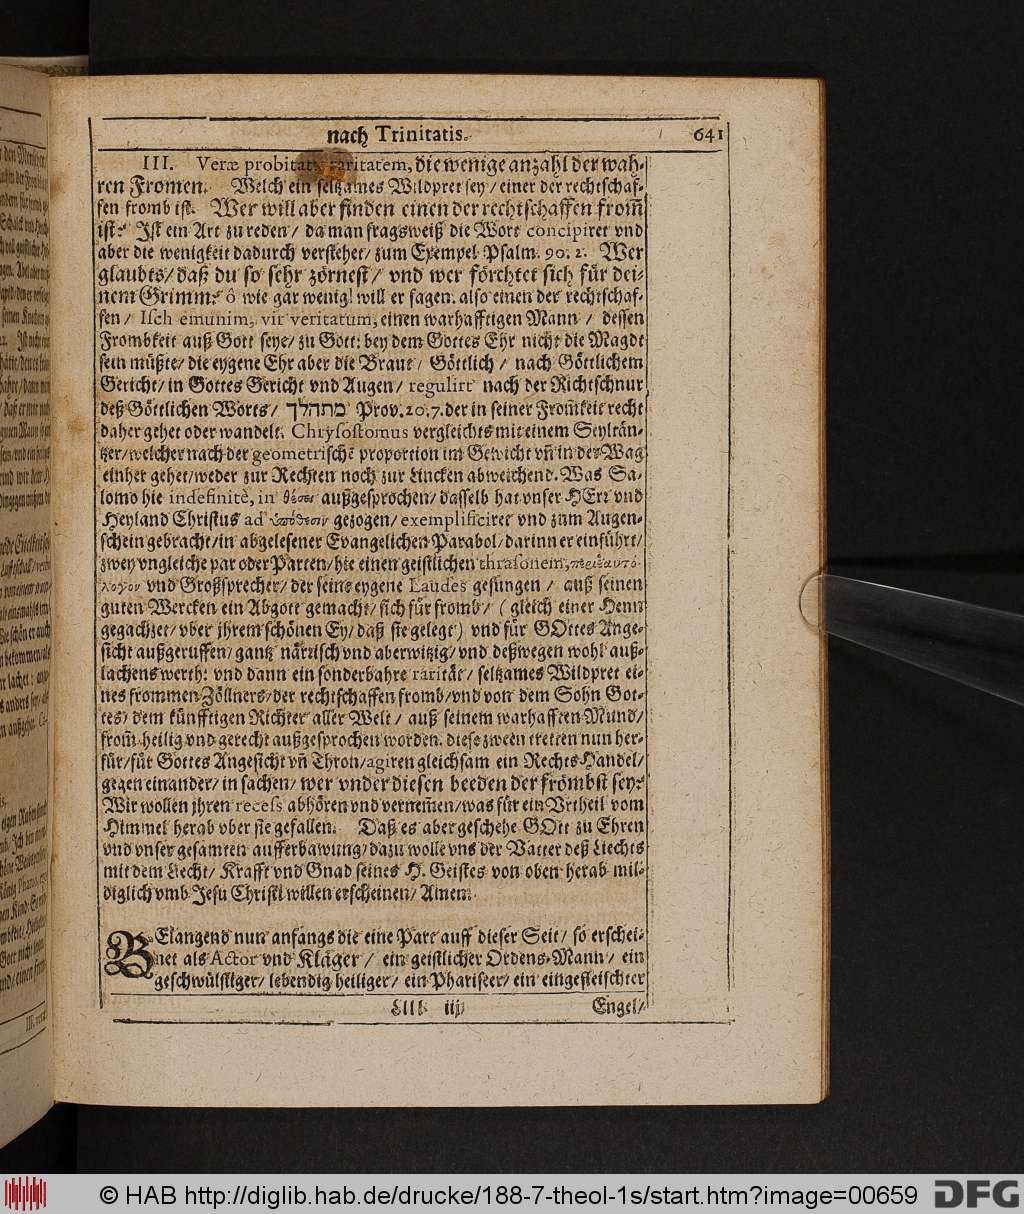 nach Trinitatis.
641
III. Veræ probitatis raritatem, die wenige anzahl der wah-
ren Fromen. Welch ein seltzames Wildpret sey / einer der rechtschaf-
fen fromb ist. Wer will aber finden einen der rechtschaffen from̄
ist? Ist ein Art zu reden / da man fragsweiß die Wort concipiret vnd
aber die wenigkeit dadurch verstehet / zum Exempel Psalm. 90. 2. Wer
glaubts / daß du so sehr zörnest / vnd wer förchtet sich für dei-
nem Grimm? ô wie gar wenig! will er sagen. also einen der rechtschaf-
fen / Isch emunim, vir veritatum, einen warhafftigen Mann / dessen
Frombkeit auß Gott seye / zu Gott: bey dem Gottes Ehr nicht die Magdt
sein müßte / die eygene Ehr aber die Braut / Göttlich / nach Göttlichem
Gericht / in Gottes Gericht vnd Augen / regulirt nach der Richtschnur
deß Göttlichen Worts / מתהלך Prov. 20. 7. der in seiner From̄keit recht
daher gehet oder wandelt. Chrysostomus vergleichts mit einem Seyltän-
tzer / welcher nach der geometrischē proportion im Gewicht vn̄ in der Wag
einher gehet / weder zur Rechten noch zur Lincken abweichend. Was Sa-
lomo hie indefinitè, in θέσει außgesprochen / dasselb hat vnser HErr vnd
Heyland Christus ad ὑπόθεσιν gezogen / exemplificiret vnd zum Augen-
schein gebracht / in abgelesener Evangelichen Parabol / darinn er einführt /
zwey vngleiche par oder Parten / hie einen geistlichen thrasonem, περιαυτό-
λογον vnd Großsprecher / der seine eygene Laudes gesungen / auß seinen
guten Wercken ein Abgott gemacht / sich für fromb / (gleich einer Henn
gegachzet / vber jhrem schönen Ey / daß sie gelegt) vnd für GOttes Ange-
sicht außgeruffen / gantz närrisch vnd aberwitzig / vnd deßwegen wohl auß-
lachens werth: vnd dann ein sonderbahre rarität / seltzames Wildpret ei-
nes frommen Zöllners / der rechtschaffen fromb / vnd von dem Sohn Got-
tes / dem künfftigen Richter aller Welt / auß seinem warhafften Mund /
from̄ heilig vnd gerecht außgesprochen worden. diese zween tretten nun her-
für / für Gottes Angesicht vn̄ Thron / agiren gleichsam ein Rechts-Handel /
gegen einander / in sachen / wer vnder diesen beeden der frömbst sey?
Wir wollen jhren recess abhören vnd vernem̄en / was für ein Vrtheil vom
Himmel herab vber sie gefallen. Daß es aber geschehe GOtt zu Ehren
vnd vnser gesamten aufferbawung / dazu wolle vns der Vatter deß Liechts
mit dem Liecht / Krafft vnd Gnad seines H. Geistes von oben herab mil-
diglich vmb Jesu Christi willen erscheinen / Amen.
BElangend nun anfangs die eine Part auff dieser Seit / so erschei-
net als Actor vnd Kläger / ein geistlicher Ordens-Mann / ein
geschwülstiger / lebendig heiliger / ein Phariseer / ein eingefleischter
Llll iij
Engel /
© HAB http://diglib.hab.de/drucke/188-7-theol-1s/start.htm?image=00659
DFG